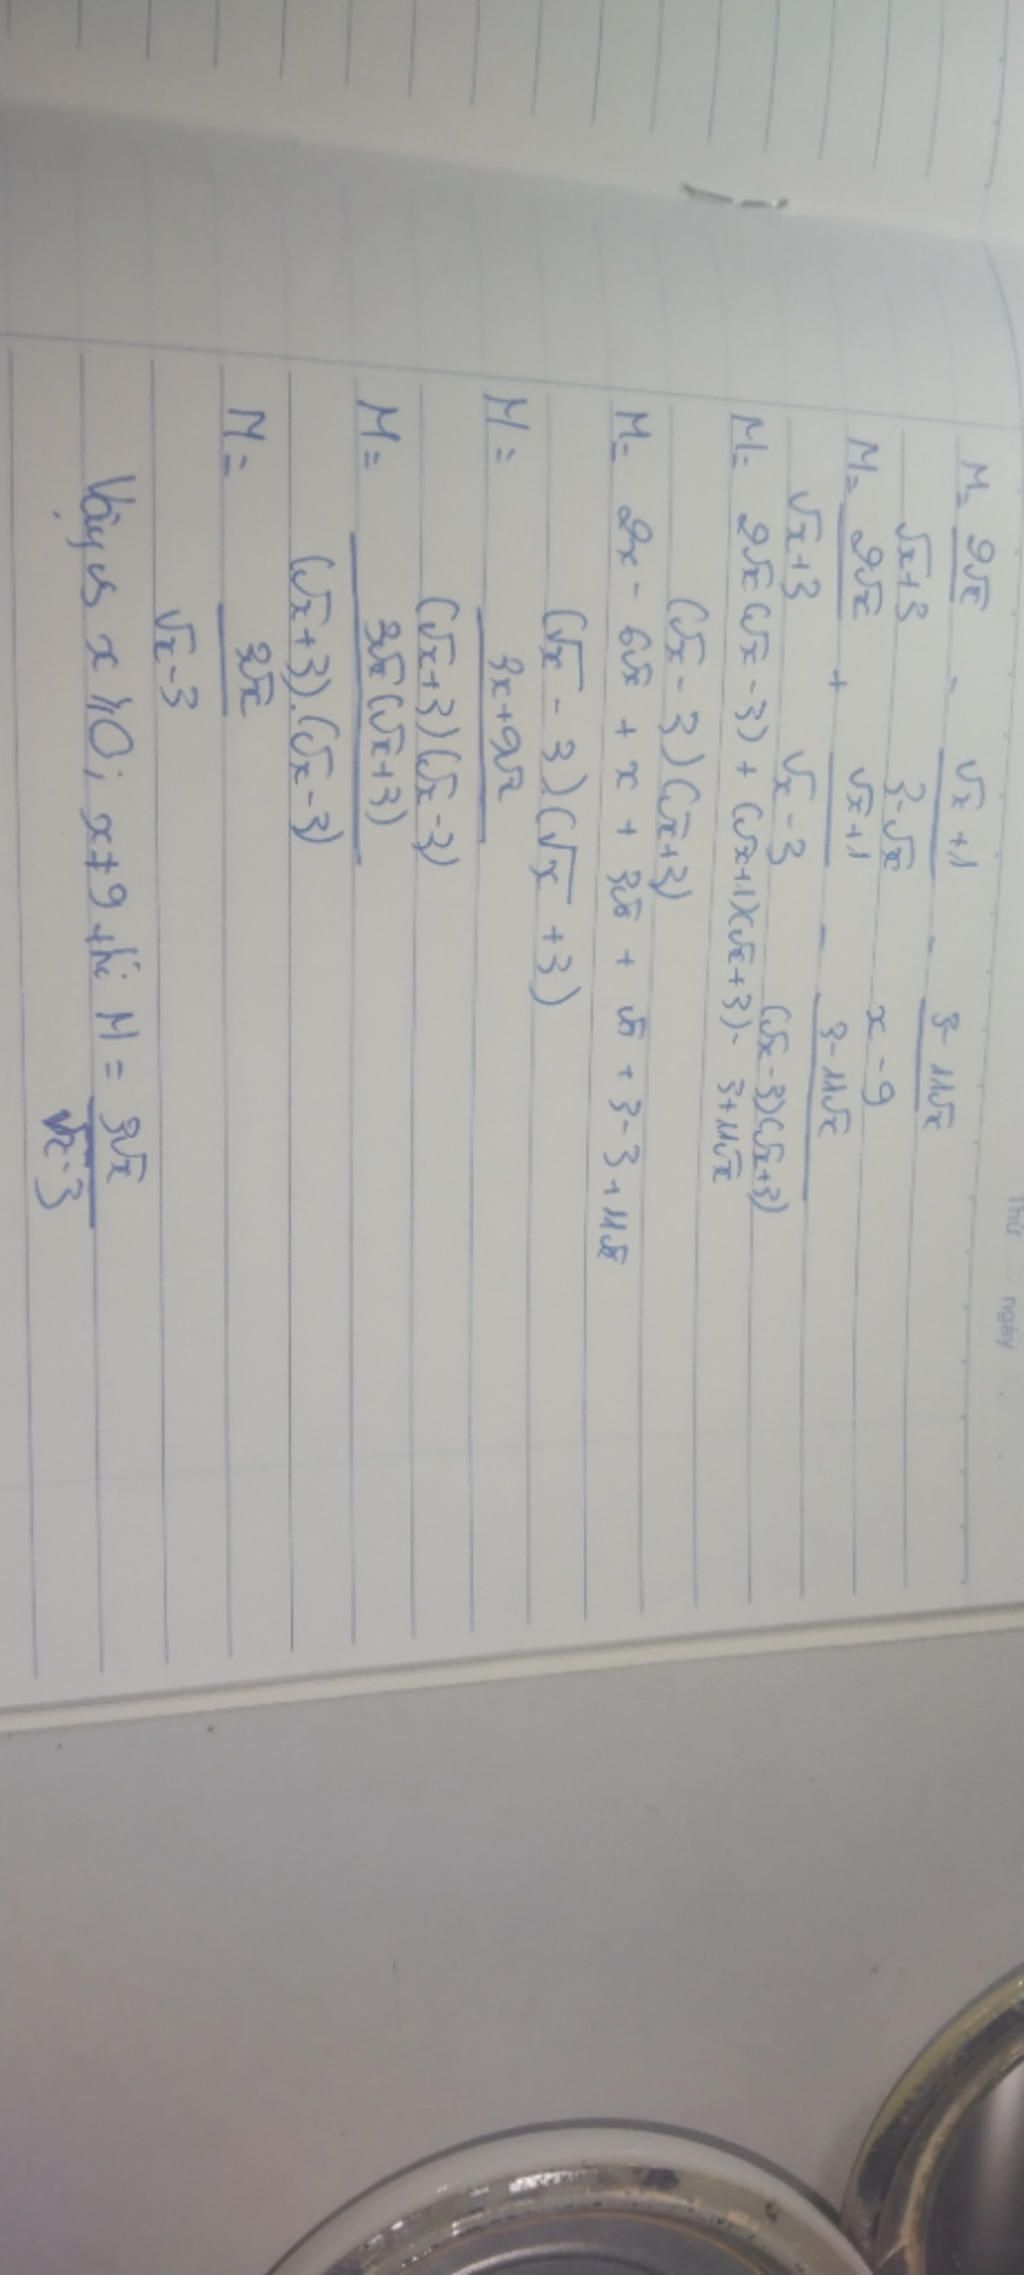 Thứ ngày
M= 2√x/√x+3 - √x+1/3-√x - 3-11√x/x-9
M= 2√x/√x+3 + √x+1/√x-3 - 3-11√x/(√x-3)(√x+3)
M= 2√x(√x-3) + (√x+1)(√x+3) - 3+11√x
(√x-3)(√x+3)
M= 2x - 6√x + x + 3√x + √x + 3-3+11√x
(√x-3)(√x+3)
M= 3x+9√x
(√x+3)(√x-3)
M= 3√x(√x+3)
(√x+3).(√x-3)
M= 3√x
√x-3
Vậy với x ≥ 0; x ≠ 9 thì M = 3√x/√x-3